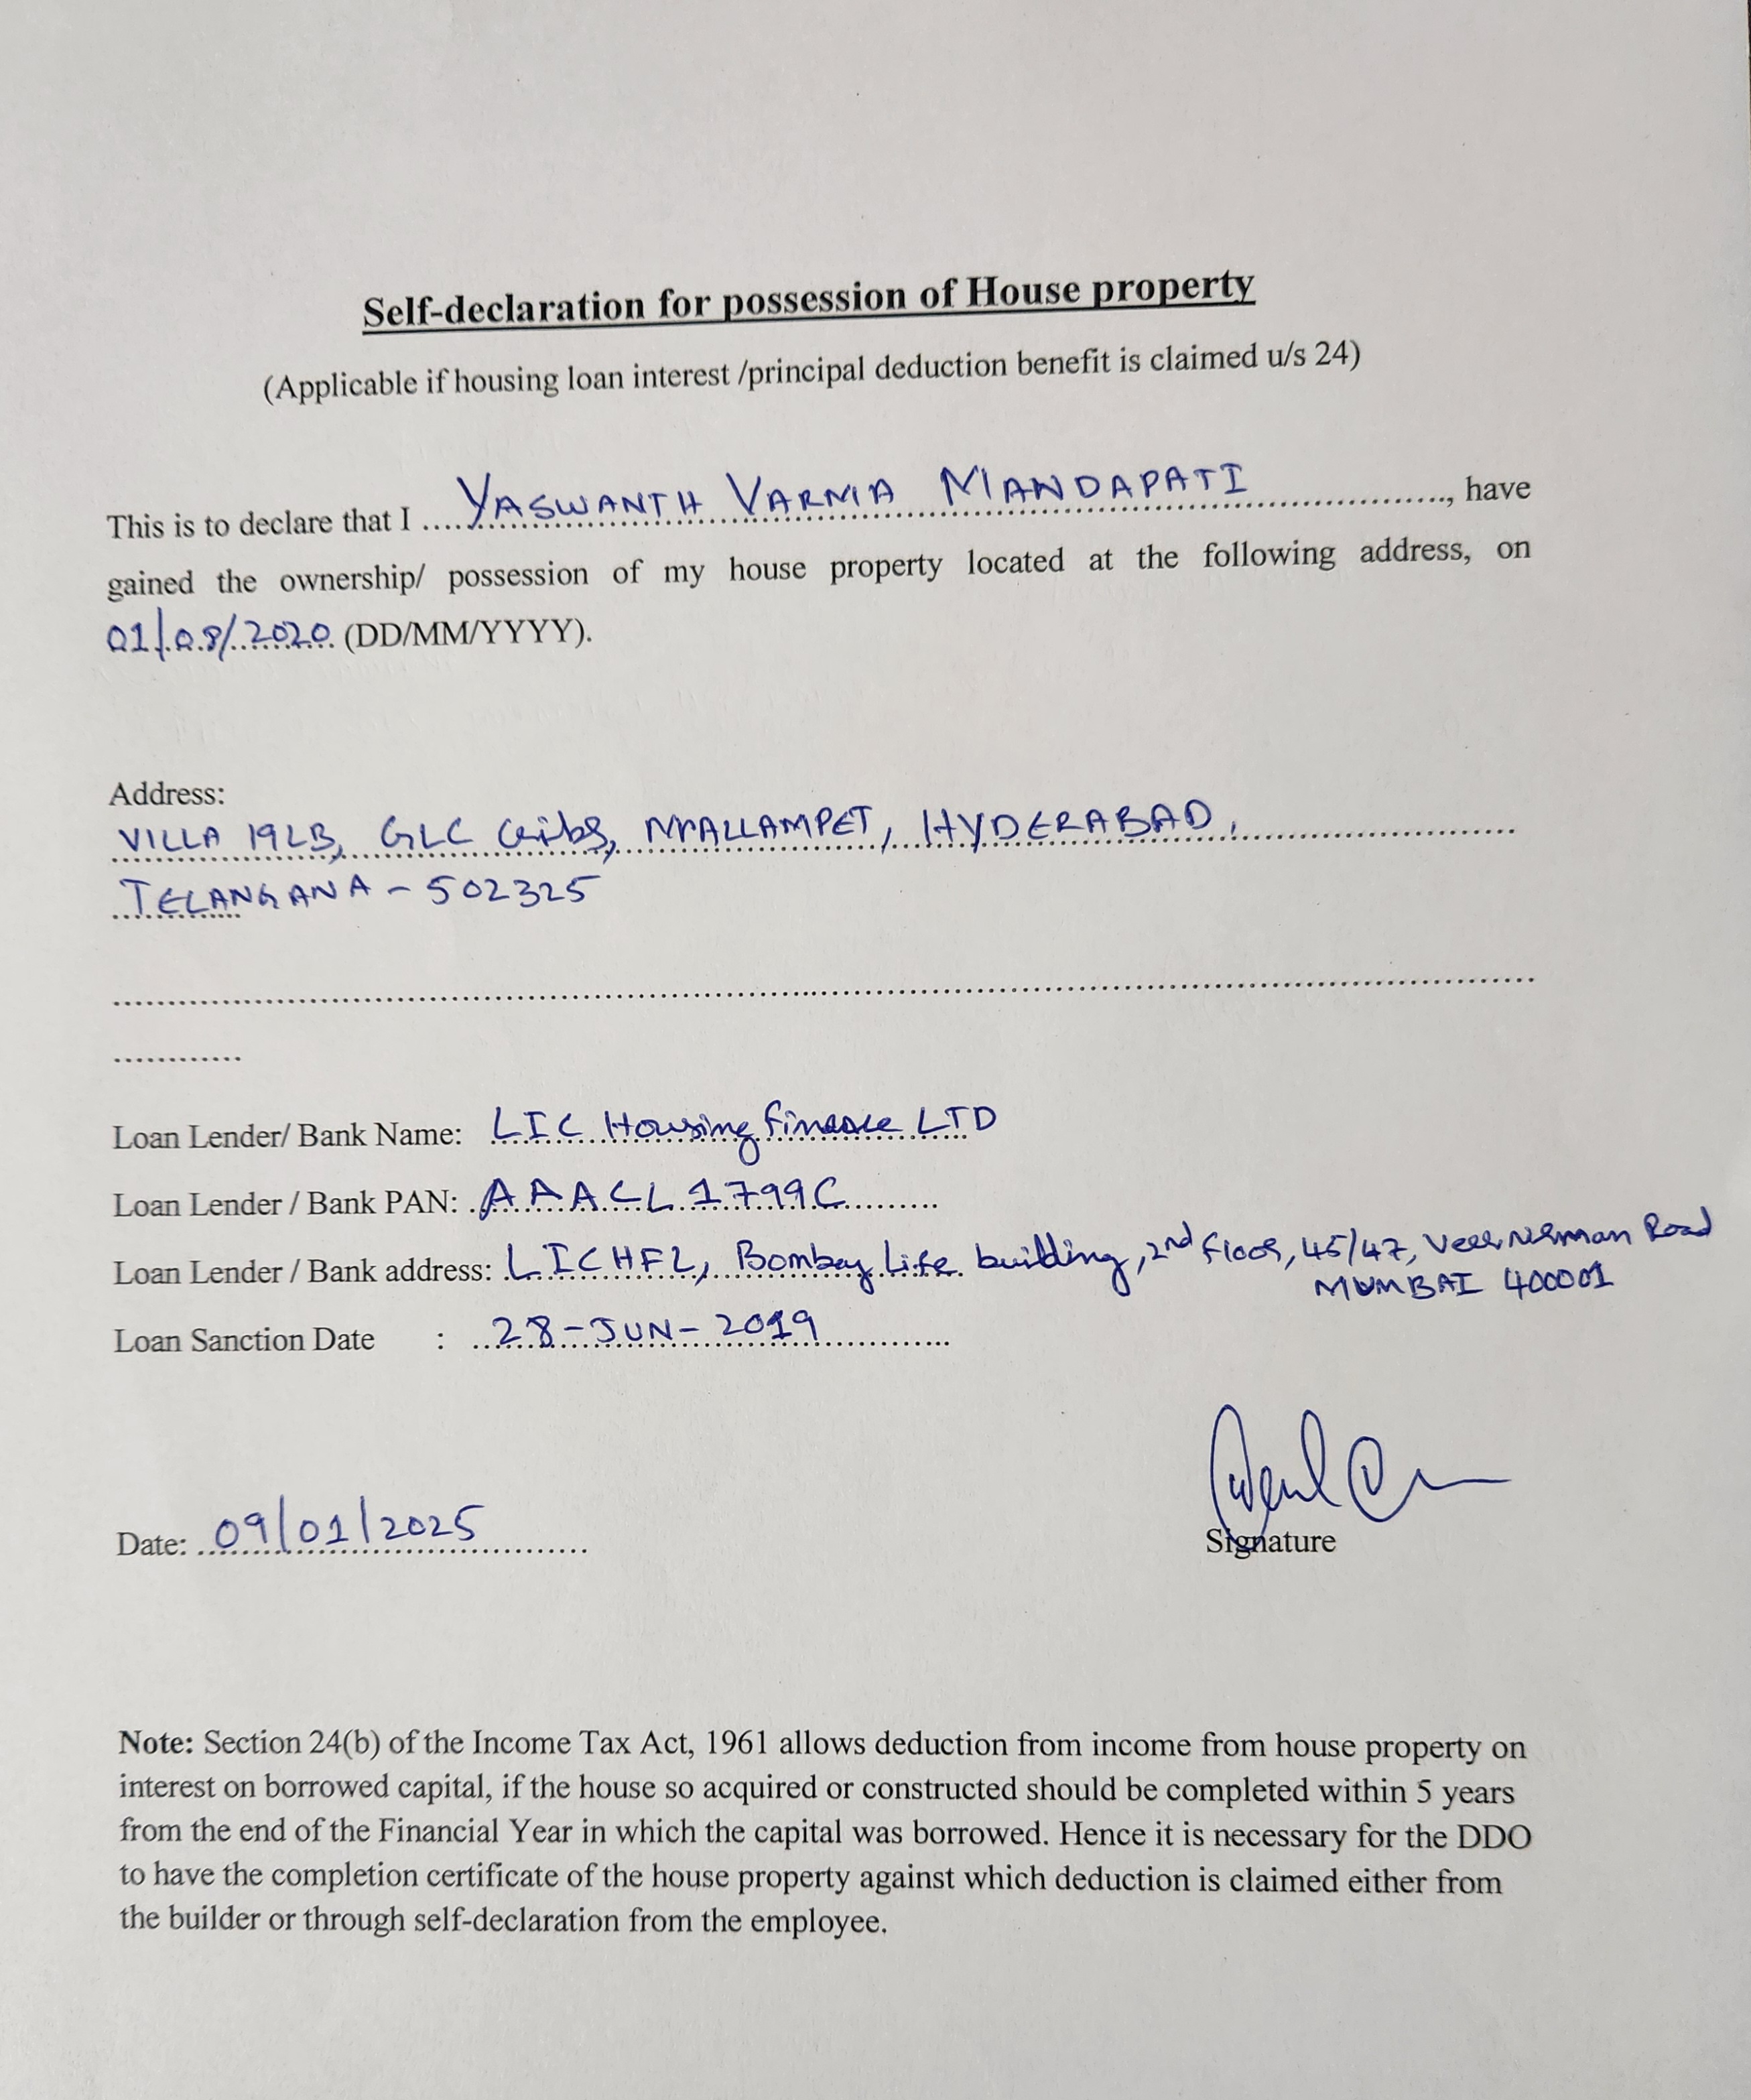 Self-declaration for possession of House property
(Applicable if housing loan interest /principal deduction benefit is claimed u/s 24)
This is to declare that I .... YASWANTH VARMA MANDAPATI ...................., have
gained the ownership/ possession of my house property located at the following address, on
01/08/2020 (DD/MM/YYYY).
Address:
VILLA 192B, GLC Cribs, MALLAMPET, HYDERABAD,
TELANGANA - 502325
Loan Lender/ Bank Name: LIC Housing Finance LTD
Loan Lender / Bank PAN: AAACL1799C
Loan Lender / Bank address: LICHFL, Bombay Life building, 2nd floor, 45/47, Veer Nariman Road
MUMBAI 400001
Loan Sanction Date : 28-JUN-2019
Date: 09/01/2025
Signature
Note: Section 24(b) of the Income Tax Act, 1961 allows deduction from income from house property on
interest on borrowed capital, if the house so acquired or constructed should be completed within 5 years
from the end of the Financial Year in which the capital was borrowed. Hence it is necessary for the DDO
to have the completion certificate of the house property against which deduction is claimed either from
the builder or through self-declaration from the employee.